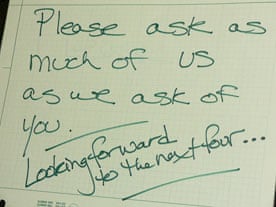 Please ask as
much of us
as we ask of
you.
Looking forward
to the next four...